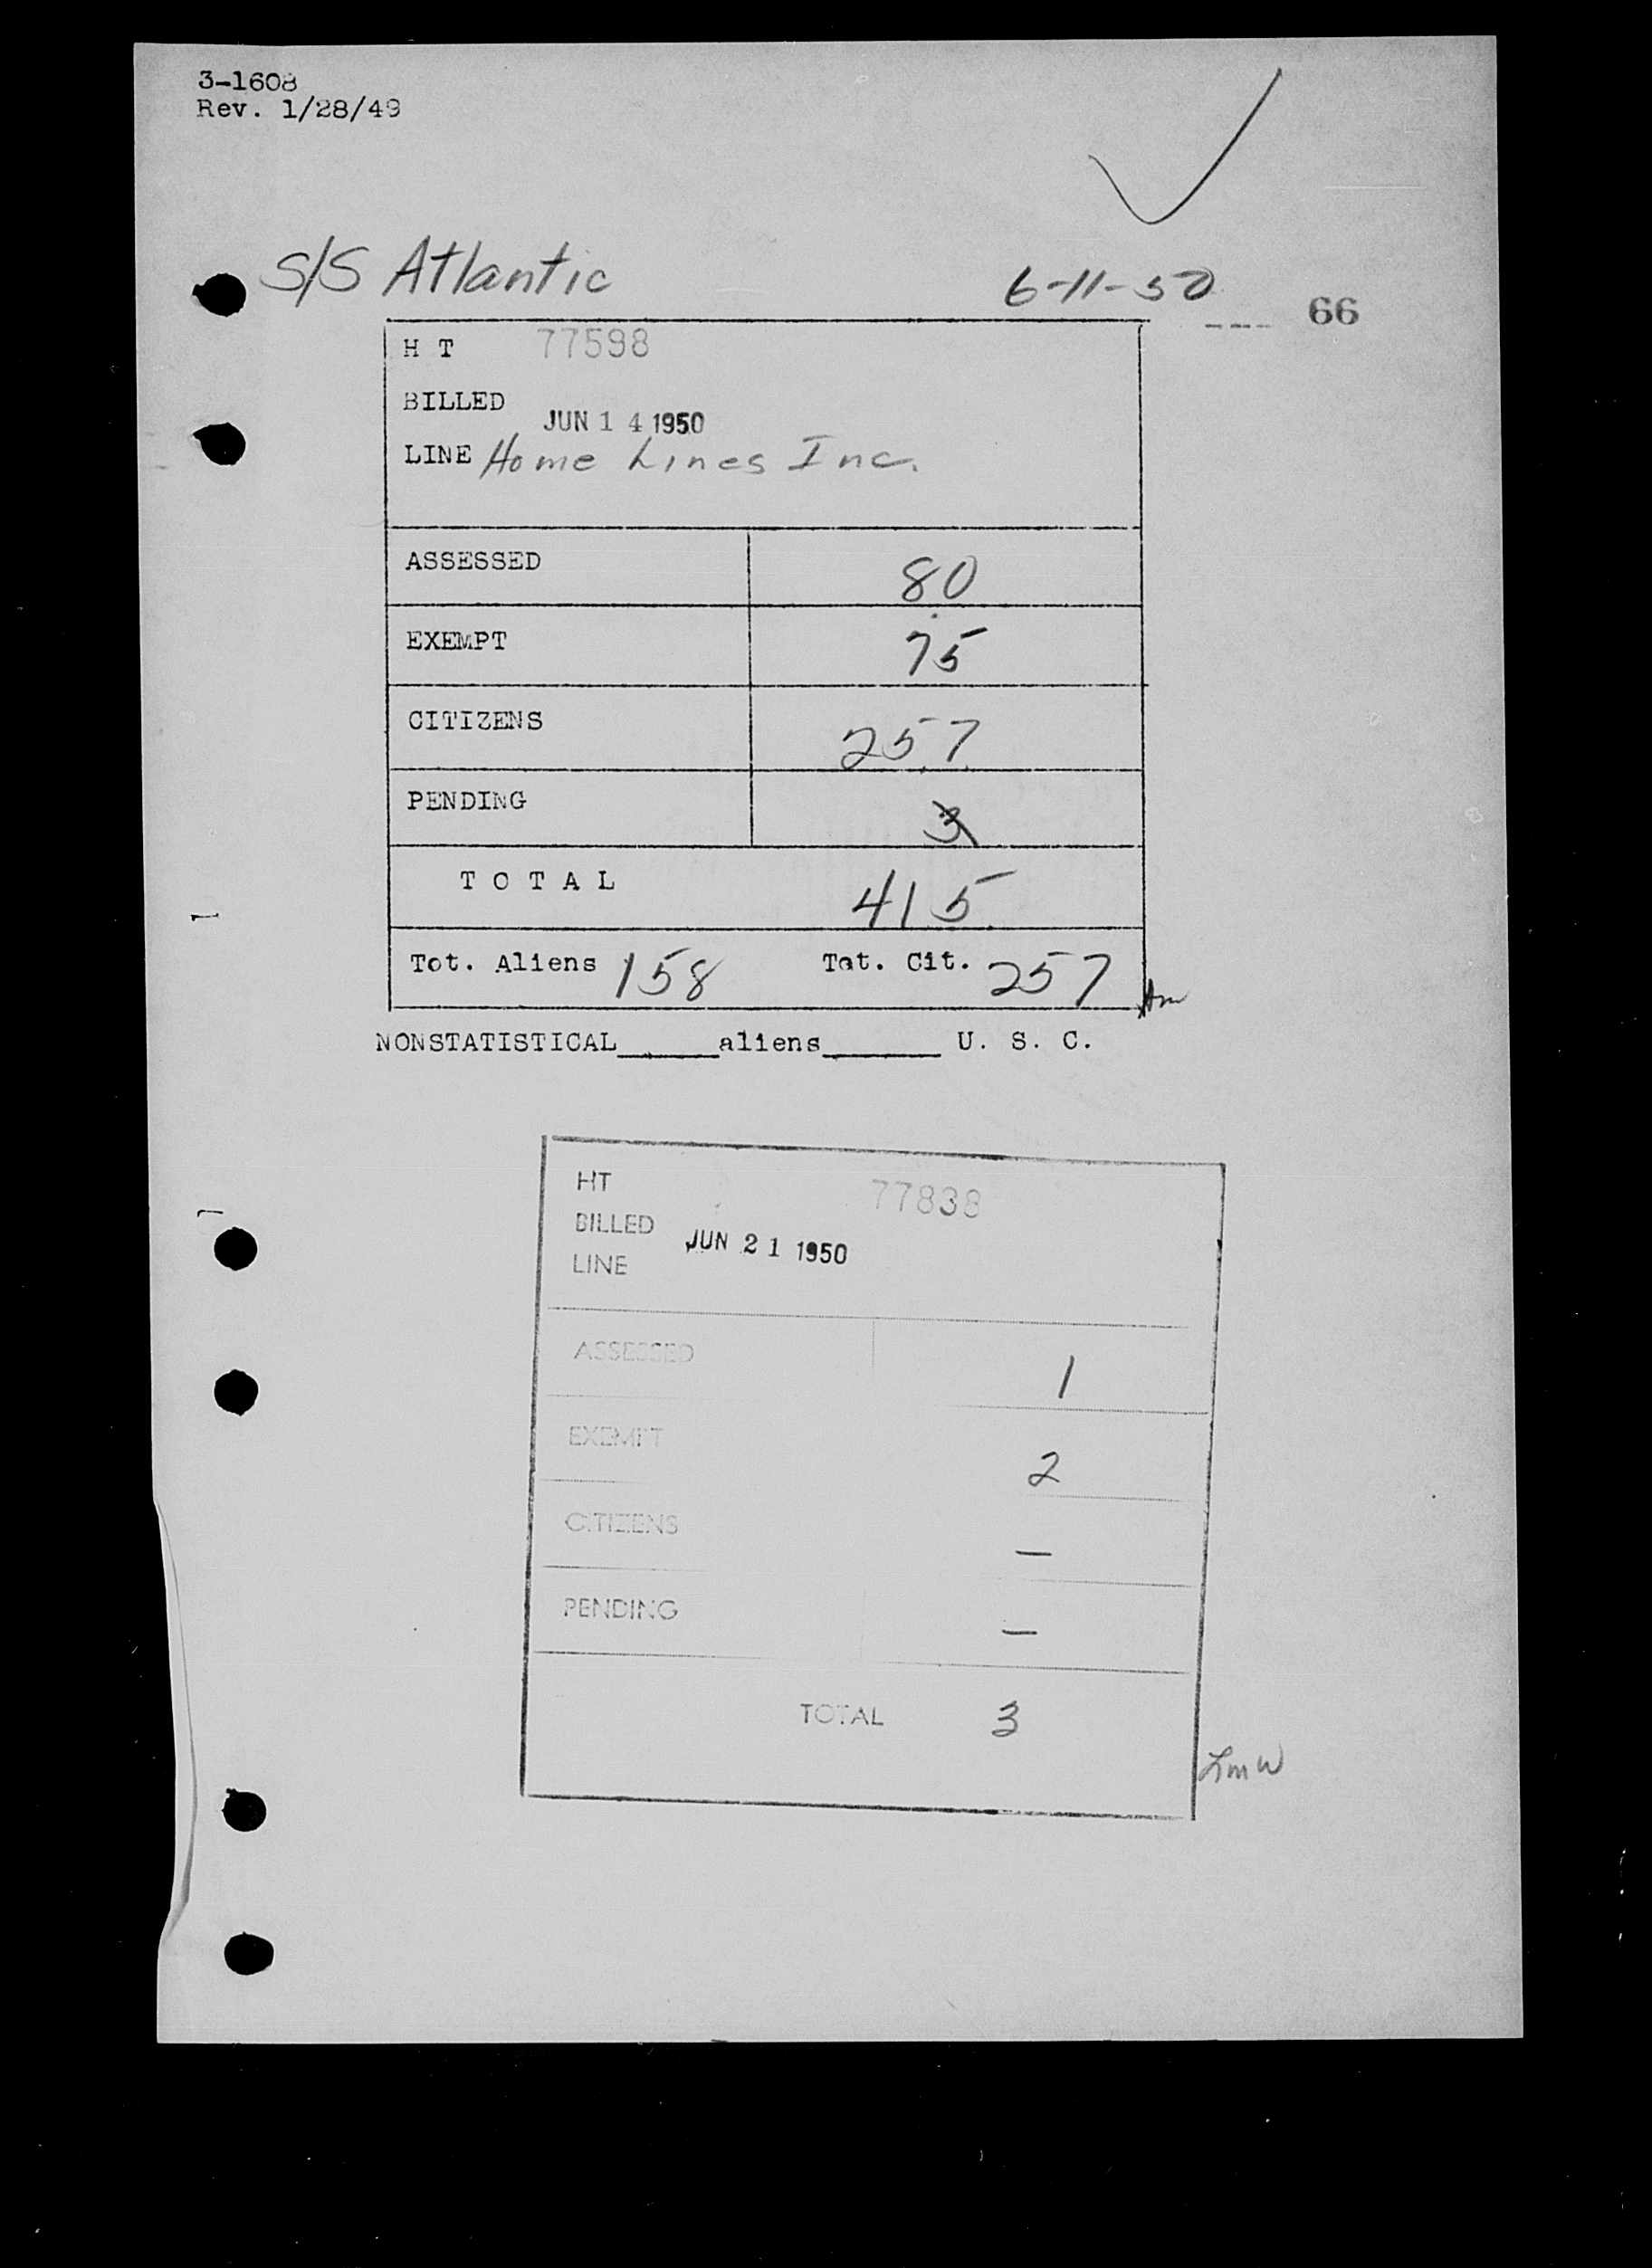 3-1608
Rev. 1/28/49
S/S Atlantic 6-11-50 66
H T 77598
BILLED JUN 14 1950
LINE Home Lines Inc.
ASSESSED 80
EXEMPT 75
CITIZENS 257
PENDING 3
TOTAL 415
Tot. Aliens 158 Tot. Cit. 257
NONSTATISTICAL_____aliens______ U. S. C.
HT 77838
BILLED JUN 21 1950
LINE
ASSESSED 1
EXEMPT 2
CITIZENS —
PENDING —
TOTAL 3
LmW